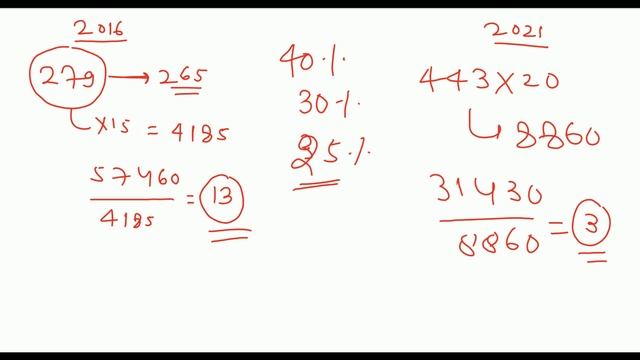 2016
279 → 265
×15 = 4185
57460
4185
= 13
40%
30%
25%
2021
443×20
8860
31430
8860
= 3